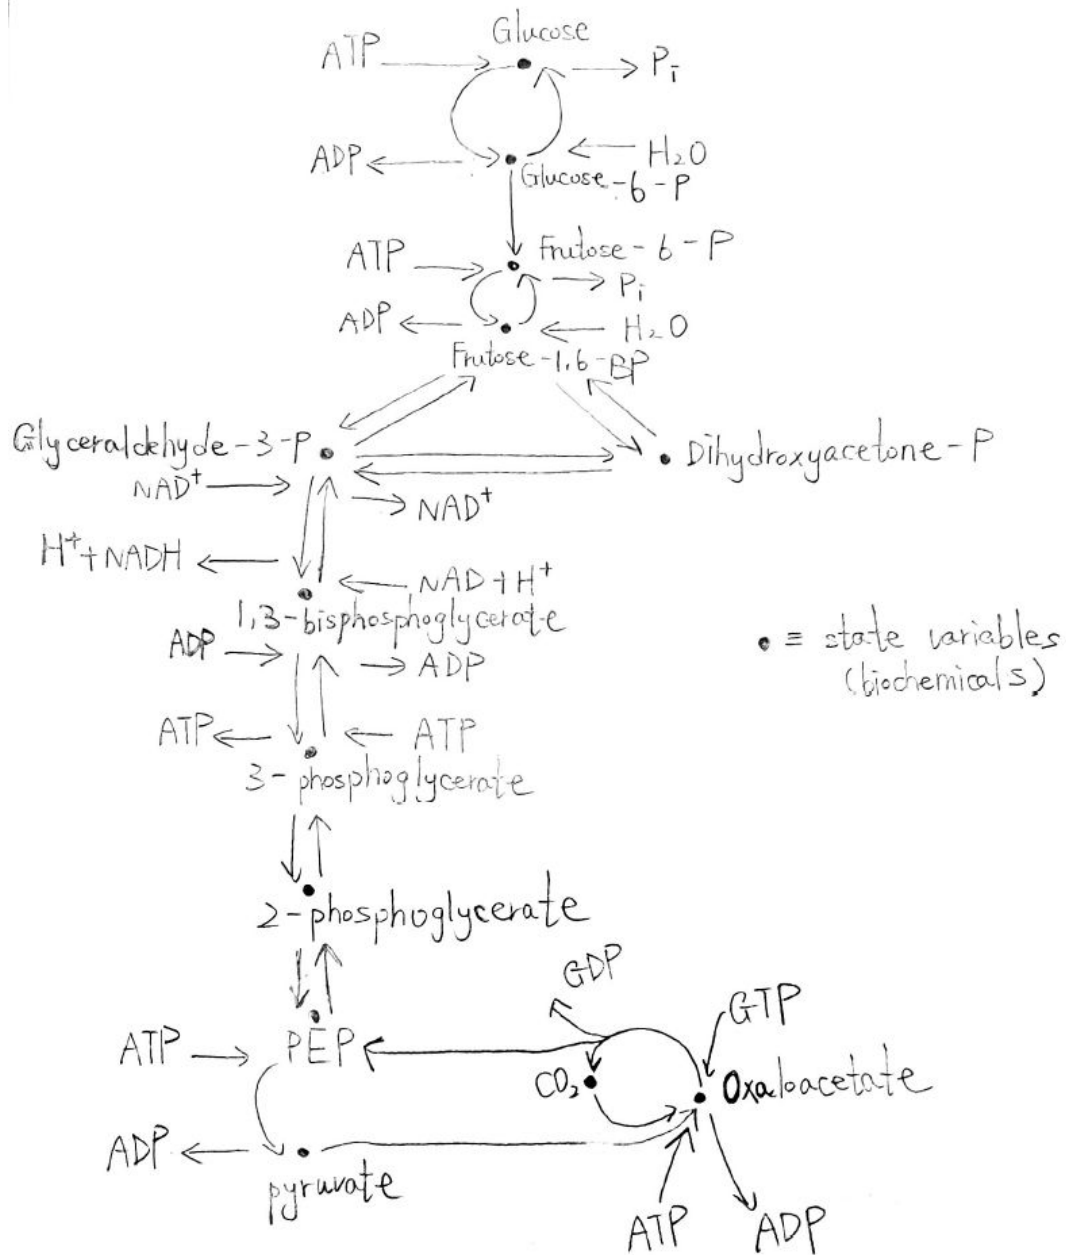 Glucose
ATP
Pi
ADP
H₂O
Glucose-6-P
ATP
Frutose-6-P
Pi
ADP
H₂O
Frutose-1,6-BP
Glyceraldehyde-3-P
Dihydroxyacetone-P
NAD⁺
NAD⁺
H⁺+NADH
NAD+H⁺
1,3-bisphosphoglycerate
ADP
ADP
• ≡ state variables
(biochemicals)
ATP
ATP
3-phosphoglycerate
2-phosphoglycerate
GDP
GTP
ATP
PEP
CO₂
Oxaloacetate
ADP
pyruvate
ATP
ADP